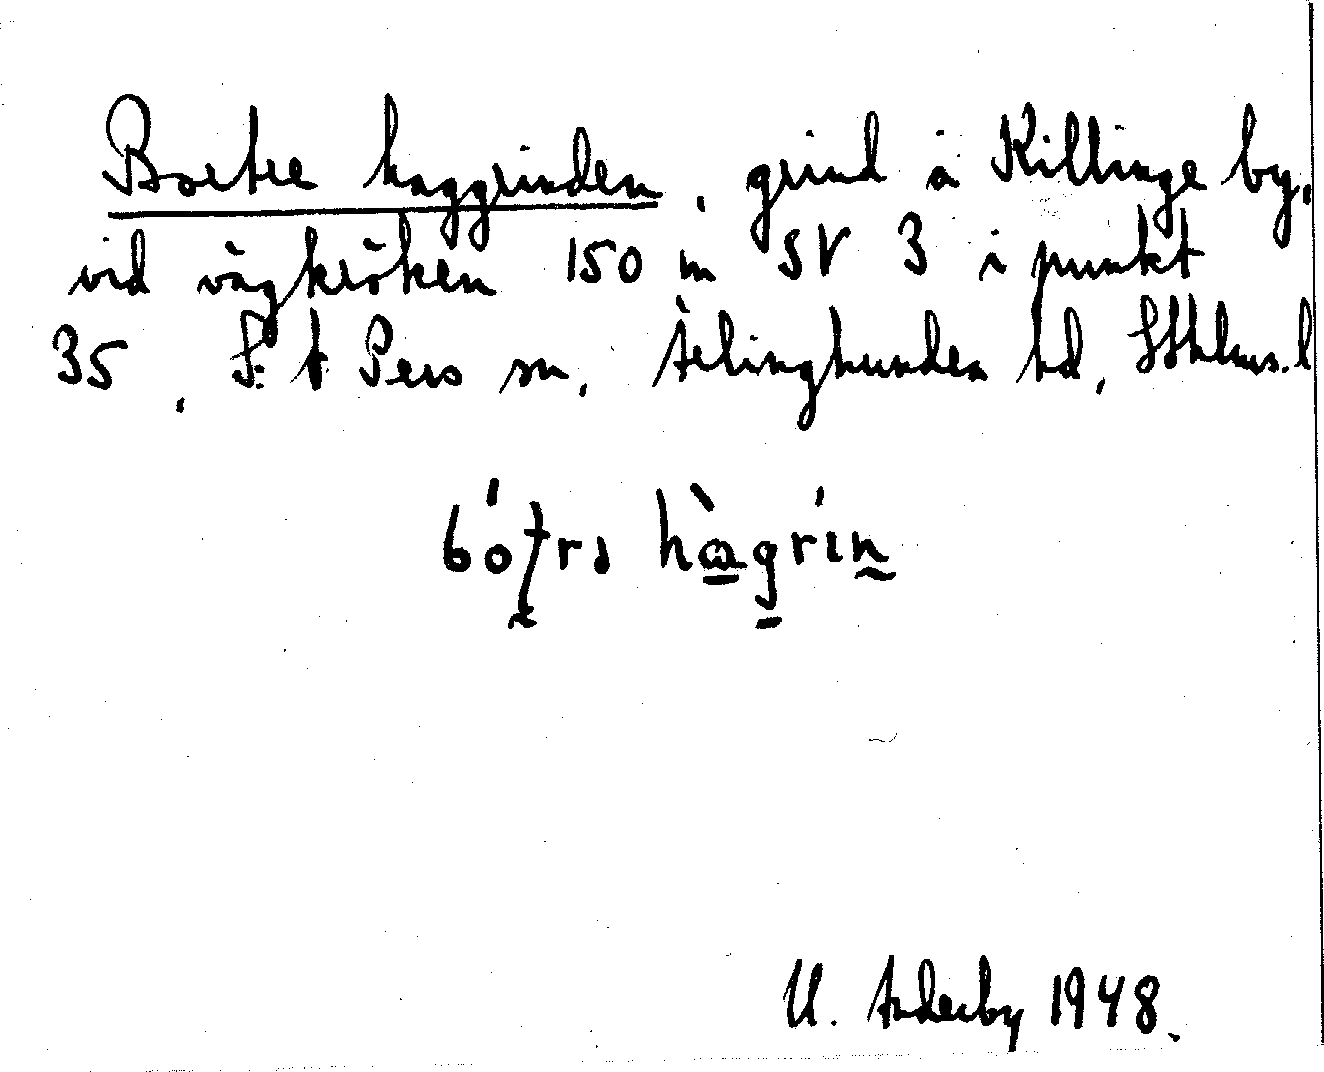 Bortre haggrinden, grind å Killinge by,
vid vägkröken 150 m SV 3 i punkt
35, S:t Pers sn, Ärlinghundra hd, Sthlms. l
U. Anderby 1948.